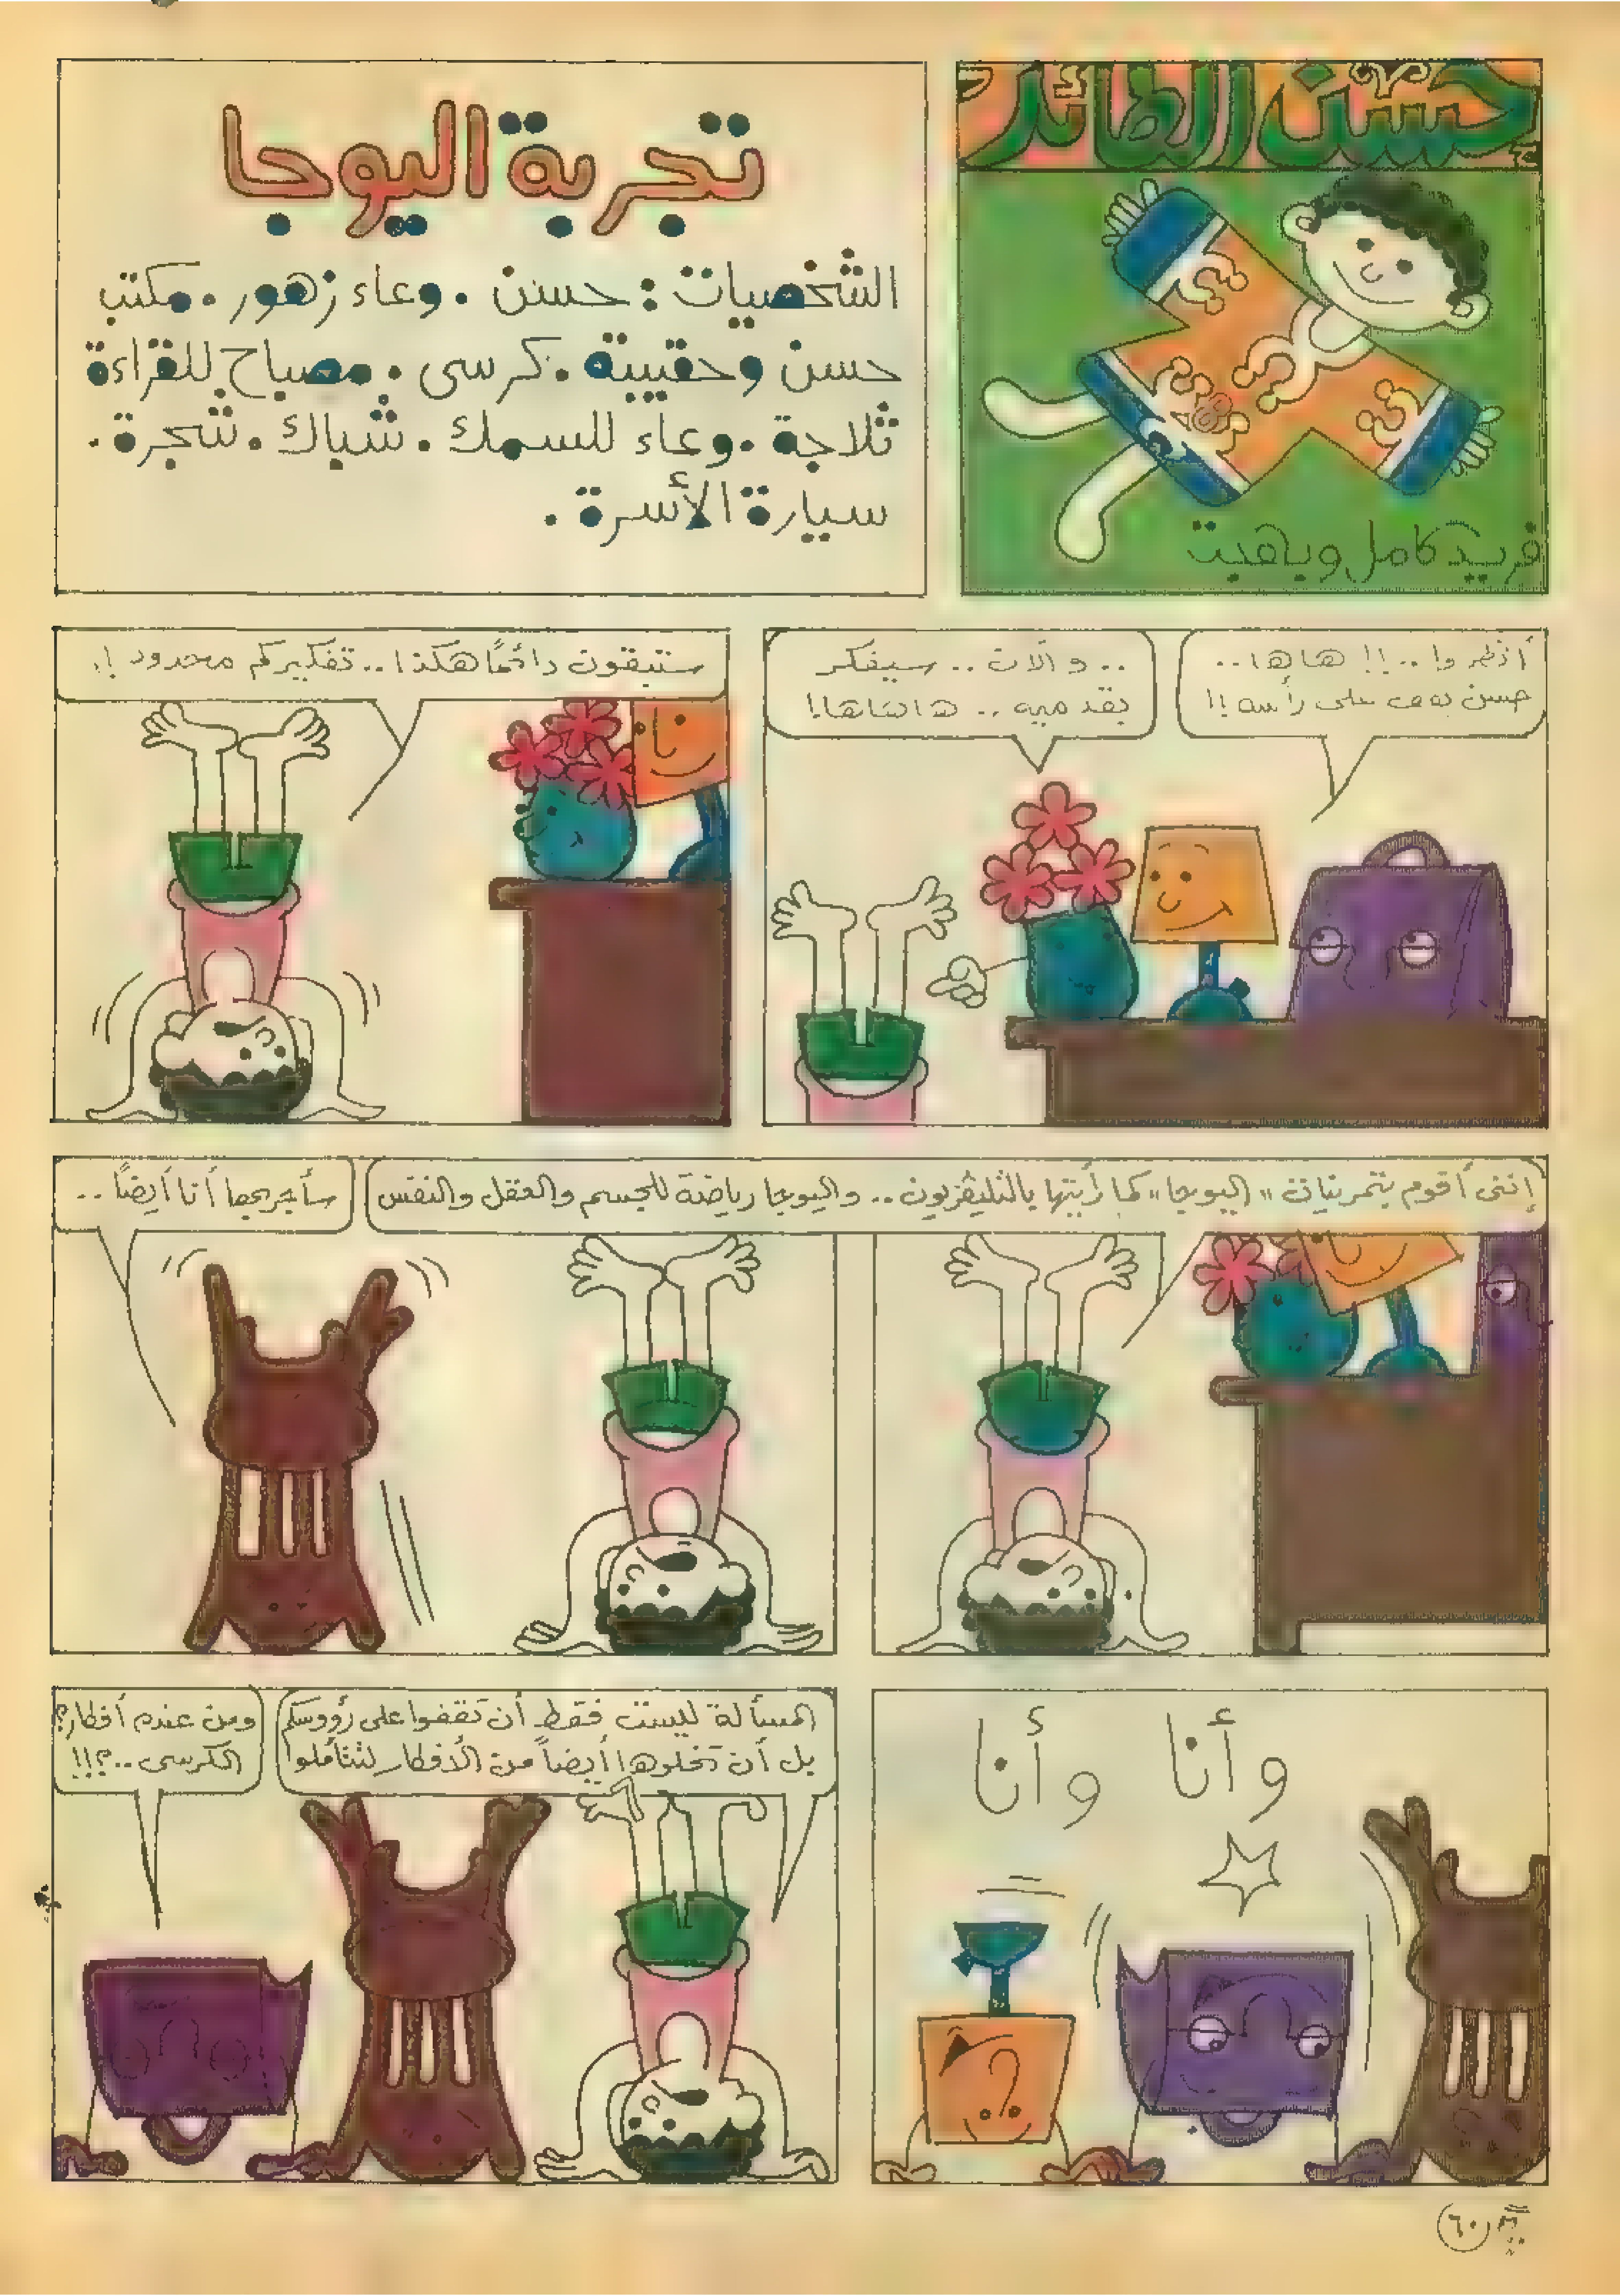 حسن الطائر
فريد كامل وبهجت
تجربة اليوجا
الشخصيات : حسن . وعاء زهور . مكتب
حسن وحقيبته . كرسى . مصباح للقراءة
ثلاجة . وعاء للسمك . شباك . شجرة .
سيارة الأسرة .
أنظروا ..!! هاها ..
حسن يقف على رأسه !!
.. والآن .. سيفكر
بقدميه .. هاهاها!
ستبقون دائمًا هكذا .. تفكيركم محدود !!
إننى أقوم بتمرينات "اليوجا" كما رأيتها بالتليفزيون .. واليوجا رياضة للجسم والعقل والنفس
سأجربها أنا أيضاً ..
وأنا
وأنا
المسألة ليست فقط أن تقفوا على رؤوسكم
بل أن تخلوها أيضاً من الأفكار لتتأملوا
ومن عنده أفكار؟
الكرسى ..؟!!
٦٠